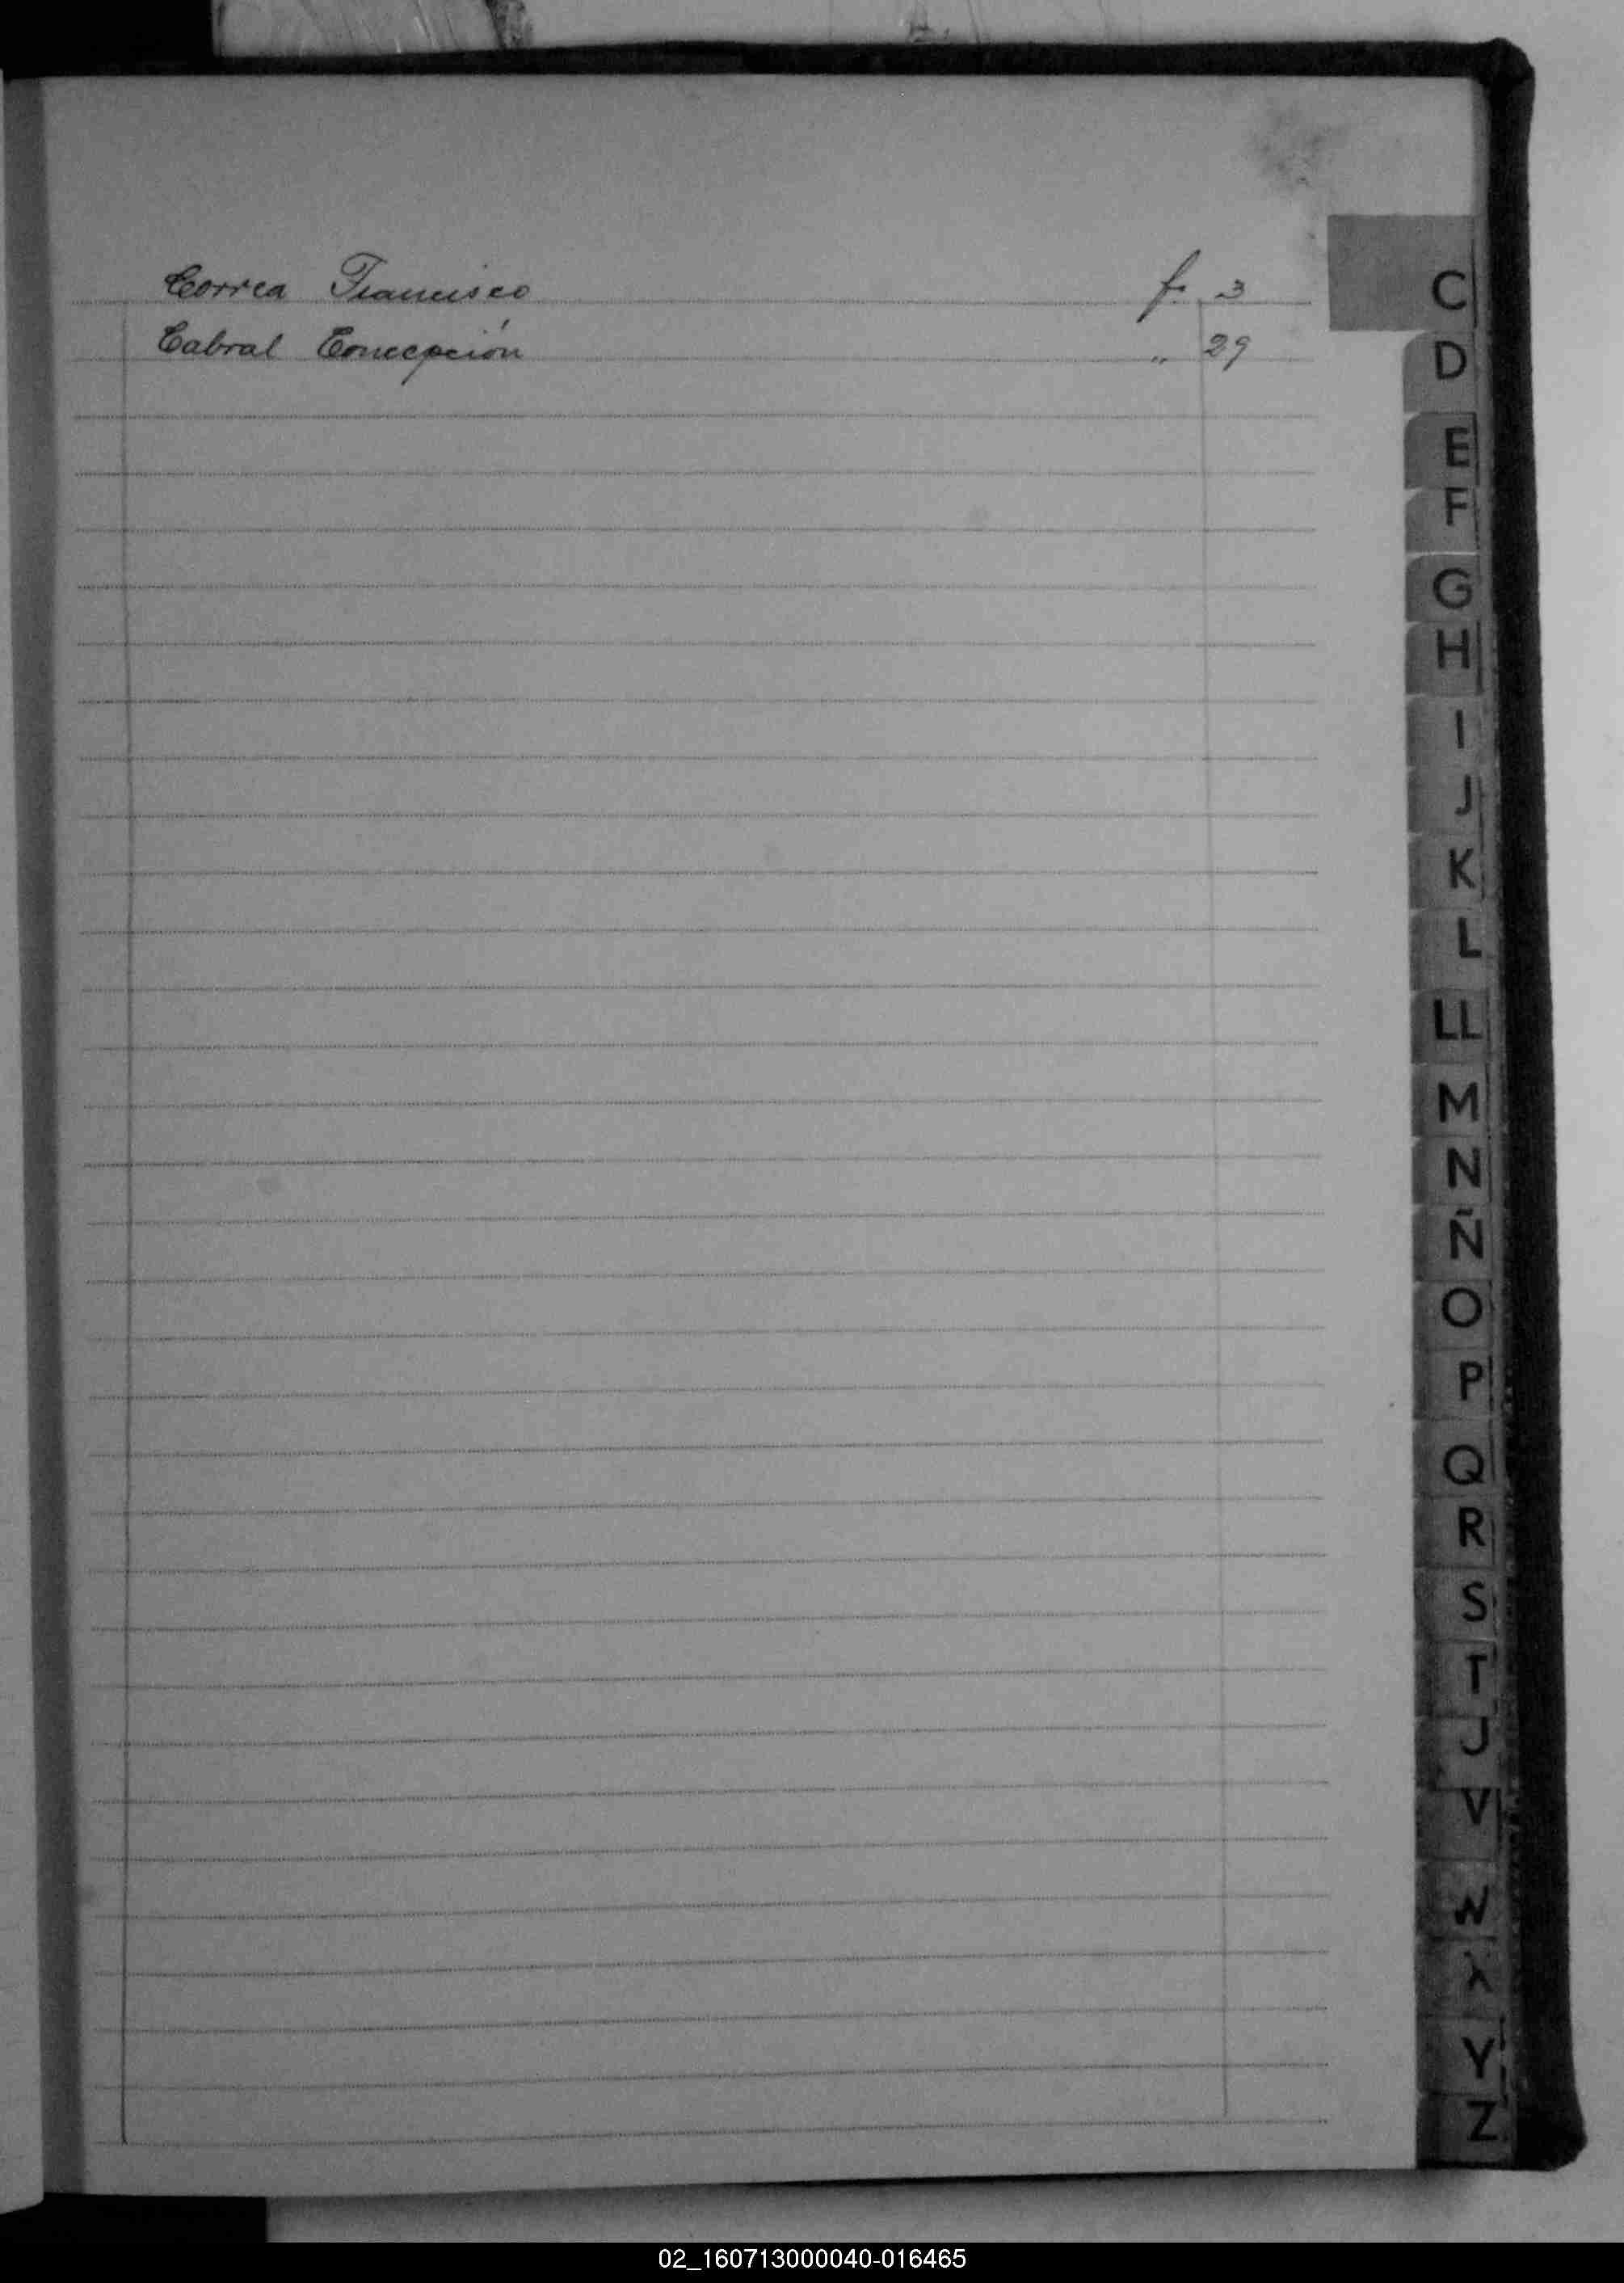 Correa Francisco f. 3
Cabral Concepción " 29
C
D
E
F
G
H
I
J
K
L
LL
M
N
Ñ
O
P
Q
R
S
T
U
V
W
X
Y
Z
02_160713000040-016465